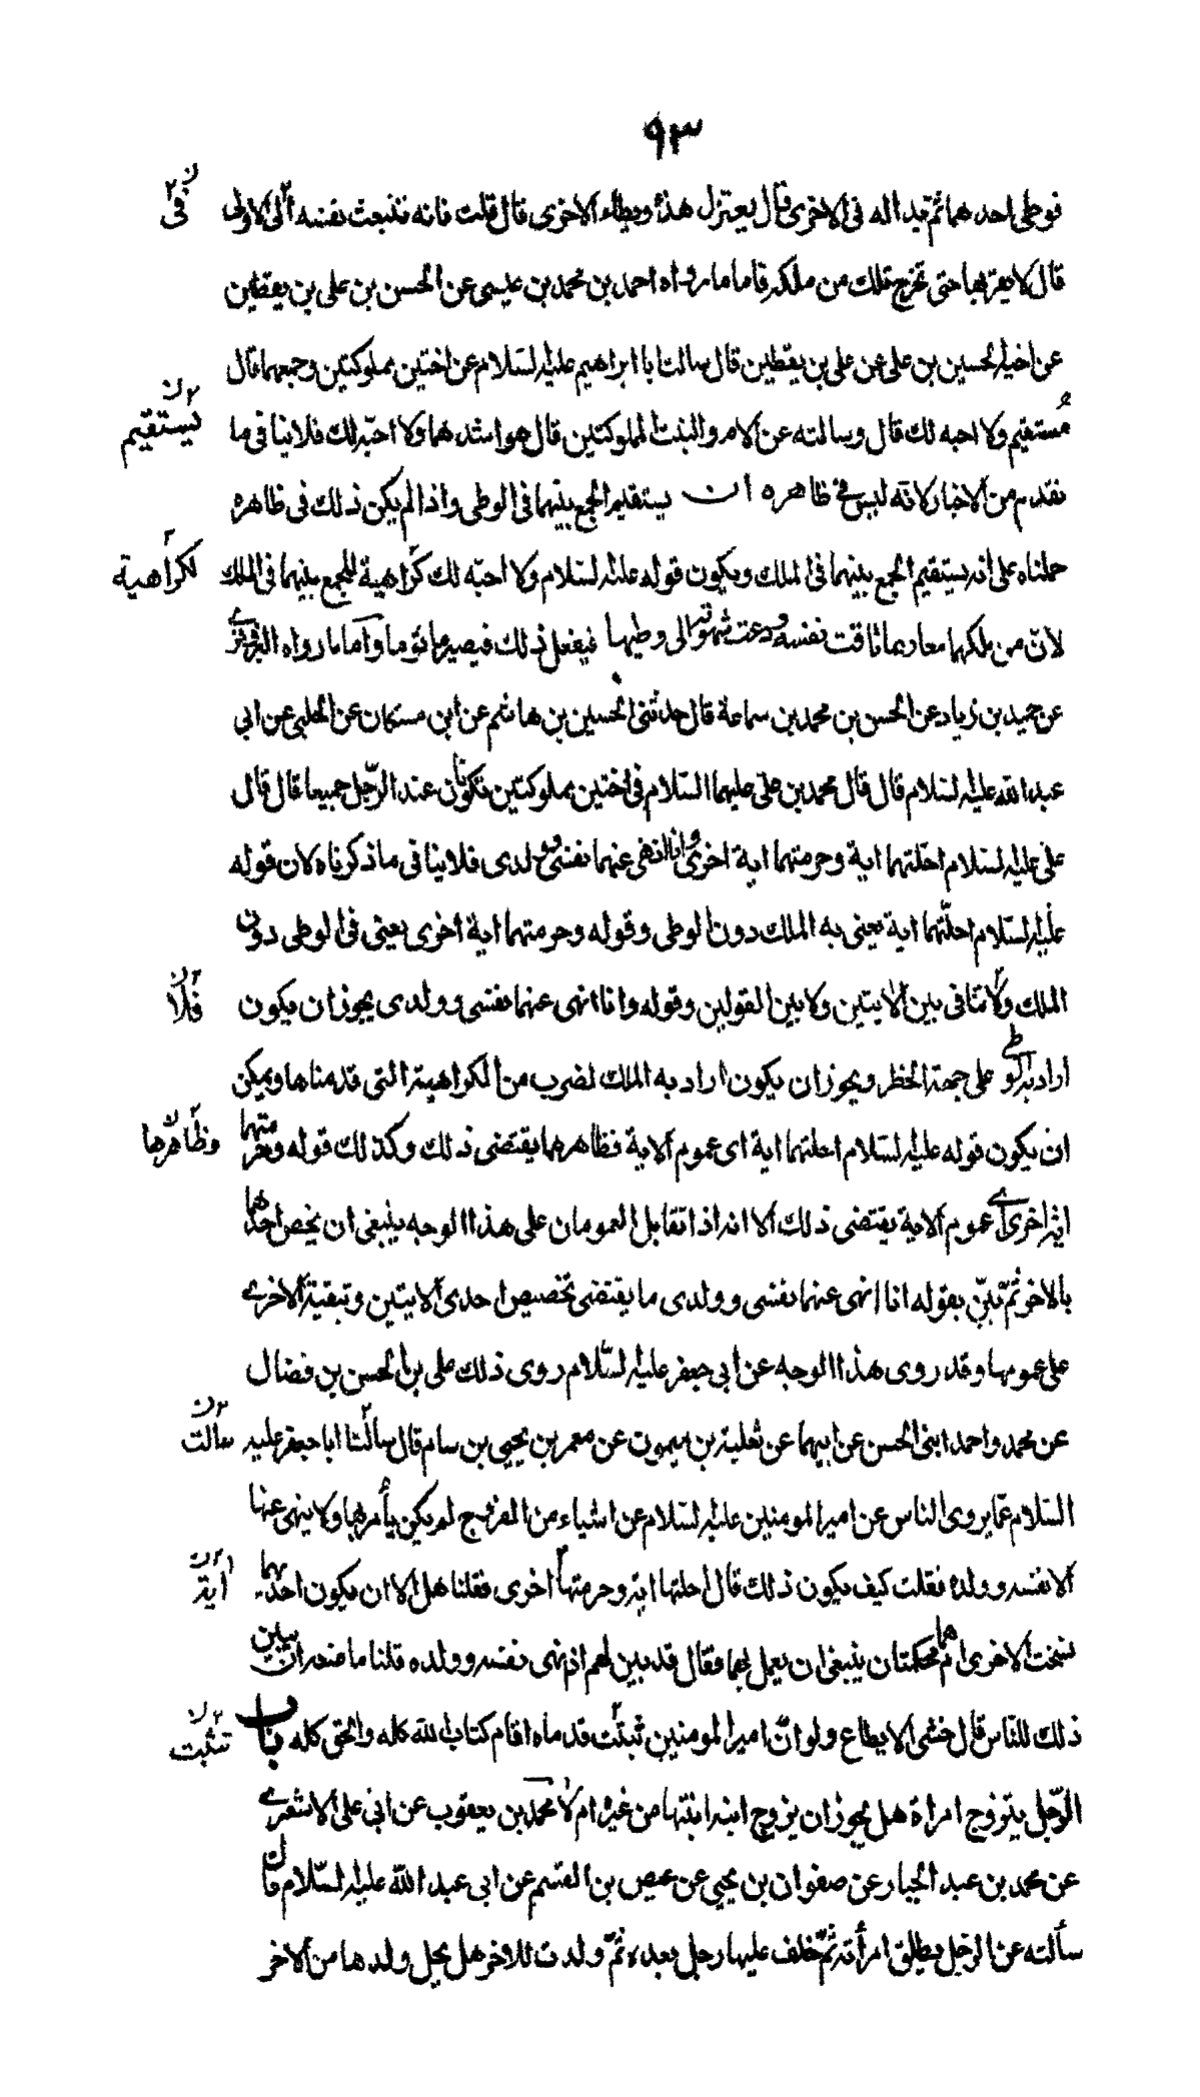 ٩٣
فوطى احدهما ثم بدا له فى الاخرى قال يعتزل هذه ويطاء الاخرى قال قلت فانه تنبعث نفسه الى الاولى فى
قال لا يقربها حتى تخرج تلك من ملكه فاما ما رواه احمد بن محمد بن عيسى عن الحسن بن على بن يقطين
عن اخيه الحسين بن على عن على بن يقطين قال سالت ابا ابراهيم عليه السلام عن اختين مملوكتين وجمعهما قال
مستقيم ولا احبه لك قال وسالته عن الام والبنت المملوكتين قال هو اشدهما ولا احبّه لك فلا ينافى ما يستقيم
تقدم من الاخبار لانه ليس فى ظاهره ان يستقيم الجمع بينهما فى الوطى واذا لم يكن ذلك فى ظاهره
حملناه على انه يستقيم الجمع بينهما فى الملك ويكون قوله عليه السلام ولا احبّه لك كراهية للجمع بينهما فى الملك لكراهية
لان من ملكهما معا ربما تاقت نفسه ودعت شهوته الى وطيهما فيفعل ذلك فيصير ماثوما واما ما رواه البزوفرى
عن حميد بن زياد عن الحسن بن محمد بن سماعة قال حدثنى الحسين بن هاشم عن ابن مسكان عن الحلبى عن ابى
عبد الله عليه السلام قال قال محمد بن على عليهما السلام فى اختين مملوكتين تكونان عند الرّجل جميعا قال قال
على عليه السلام احلتهما اية وحرمتهما اية اخرى وانا انهى عنهما نفسى وولدى فلا ينافى ما ذكرناه لان قوله
عليه السلام احلّتهما اية يعنى به الملك دون الوطى وقوله وحرمتهما اية اخرى يعنى فى الوطى دون
الملك ولا تنافى بين الايتين ولا بين القولين وقوله وانا انهى عنهما نفسى وولدى يجوز ان يكون فلا
اراد به الوطى على جهة الحظر ويجوز ان يكون اراد به الملك لضرب من الكراهية التى قدمناها ويمكن
ان يكون قوله عليه السلام احلتهما اية اى عموم الاية فظاهرهما يقتضى ذلك وكذلك قوله وحرمتهما وظاهرها
اية اخرى اى عموم الاية يقتضى ذلك الا انه اذا تقابل العمومان على هذا الوجه ينبغى ان يخص احدهما
بالاخر ثمّ بيّن بقوله انا انهى عنهما نفسى وولدى ما يقتضى تخصيص احدى الايتين وتبقية الاخرى
على عمومها وقد روى هذا الوجه عن ابى جعفر عليه السّلام روى ذلك على بن الحسن بن فضال
عن محمد واحمد ابنى الحسن عن ابيهما عن ثعلبة بن ميمون عن معمر بن يحيى بن سام قال سالنا ابا جعفر عليه سالت
السّلام عمّا يروى الناس عن امير المومنين عليه السلام عن اشياء من الفروج لم يكن يأمر بها ولا ينهى عنها
الا نفسه وولده فقلت كيف يكون ذلك قال احلتها اية وحرمتها اخرى فقلنا هل الا ان يكون احديهما اية
نسخت الاخرى ام هما محكمتان ينبغى ان يعمل بهما فقال قد بين لهم اذ نهى نفسه وولده قلنا ما منعه ان يبين
ذلك للنّاس قال خشى الا يطاع ولو انّ امير المومنين ثبتت قدماه اقام كتاب الله كله والحق كله باب تثبت
الرّجل يتزوج امراة هل يجوز ان يزوج ابنه ابنتها من غيره ام لا محمد بن يعقوب عن ابى على الاشعرى
عن محمد بن عبد الجبار عن صفوان بن يحيى عن عيص بن القسم عن ابى عبد اللّه عليه السّلام قال
سألته عن الرجل يطلق امرأته ثمّ خلف عليها رجل بعده ثمّ ولدت للاخر هل يحل ولدها من الاخر